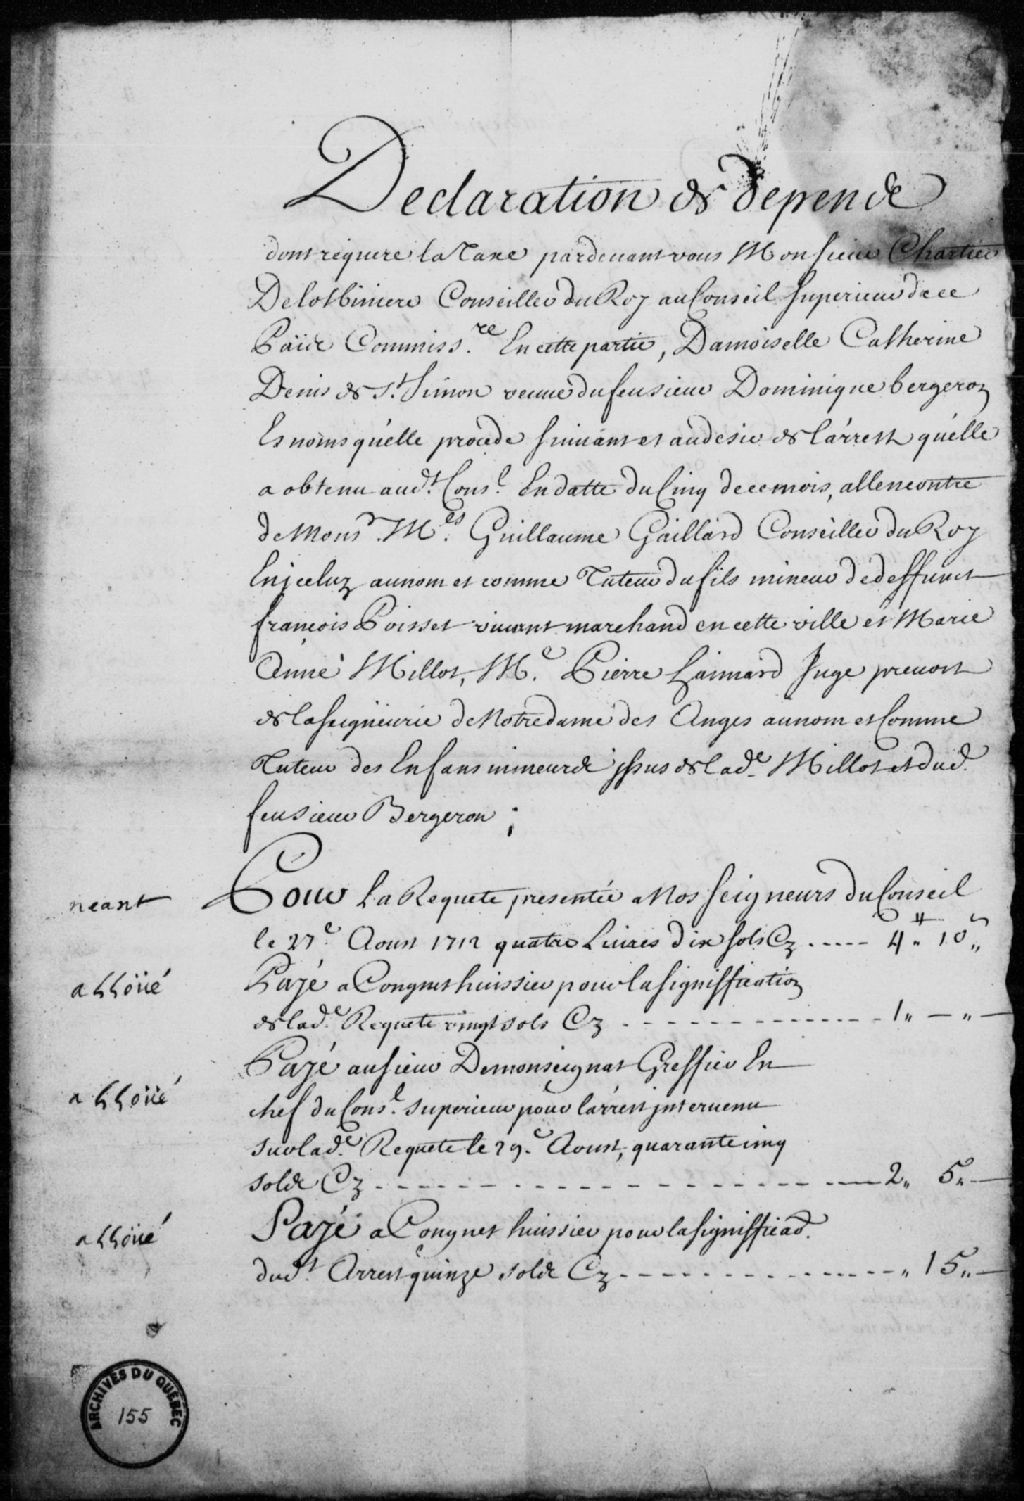 Declaration de depens
dont requere la Taxe pardevant vous Monsieur Chartier
Delotbiniere Conseiller du Roy au Conseil Superieur de ce
Païs Commiss.re En cette partie, Damoiselle Catherine
Denis de St. Simon veuve du feu sieur Dominique bergeron
Es noms qu'elle procede suivant et au desir de l'arrest qu'elle
a obtenu aud.t Cons.l En datte du Cinq de ce mois, allencontre
de Monsr. M.es Guillaume Gaillard Conseiller du Roy
En jceluy au nom et comme Tuteur du fils mineur de deffunct
françois Poisset vivant marchand en cette ville et Marie
Anne Millot, M.e Pierre Haimard Juge prevost
de la seigneurie de Notre dame des Anges au nom et Comme
Tuteur des Enfans mineurs jssus de lad.e Millot et dud.
feu sieur Bergeron ;
neant Pour La Requete presentée a Nos seigneurs du Conseil
le 27.e Aoust 1712 quatre Livres dix sols Cy ----- 4 ₶ 10 s
alloüé Payé a Congnet huissier pour la signiffication
de lad.e Requete vingt sols Cy ------------ 1 „ — „ —
Payé au sieur Demonseignat Greffier En
alloüé chef du Cons.l superieur pour l'arrest jntervenu
sur lad.e Requete le 29.e Aoust, quarante cinq
sols Cy ------------------------ 2 „ 5 „ —
alloüé Payé a Congnet huissier pour la signifficaõn.
dud.t Arrest quinze sols Cy ------------ „ 15 „ —
ARCHIVES DU QUÉBEC
155